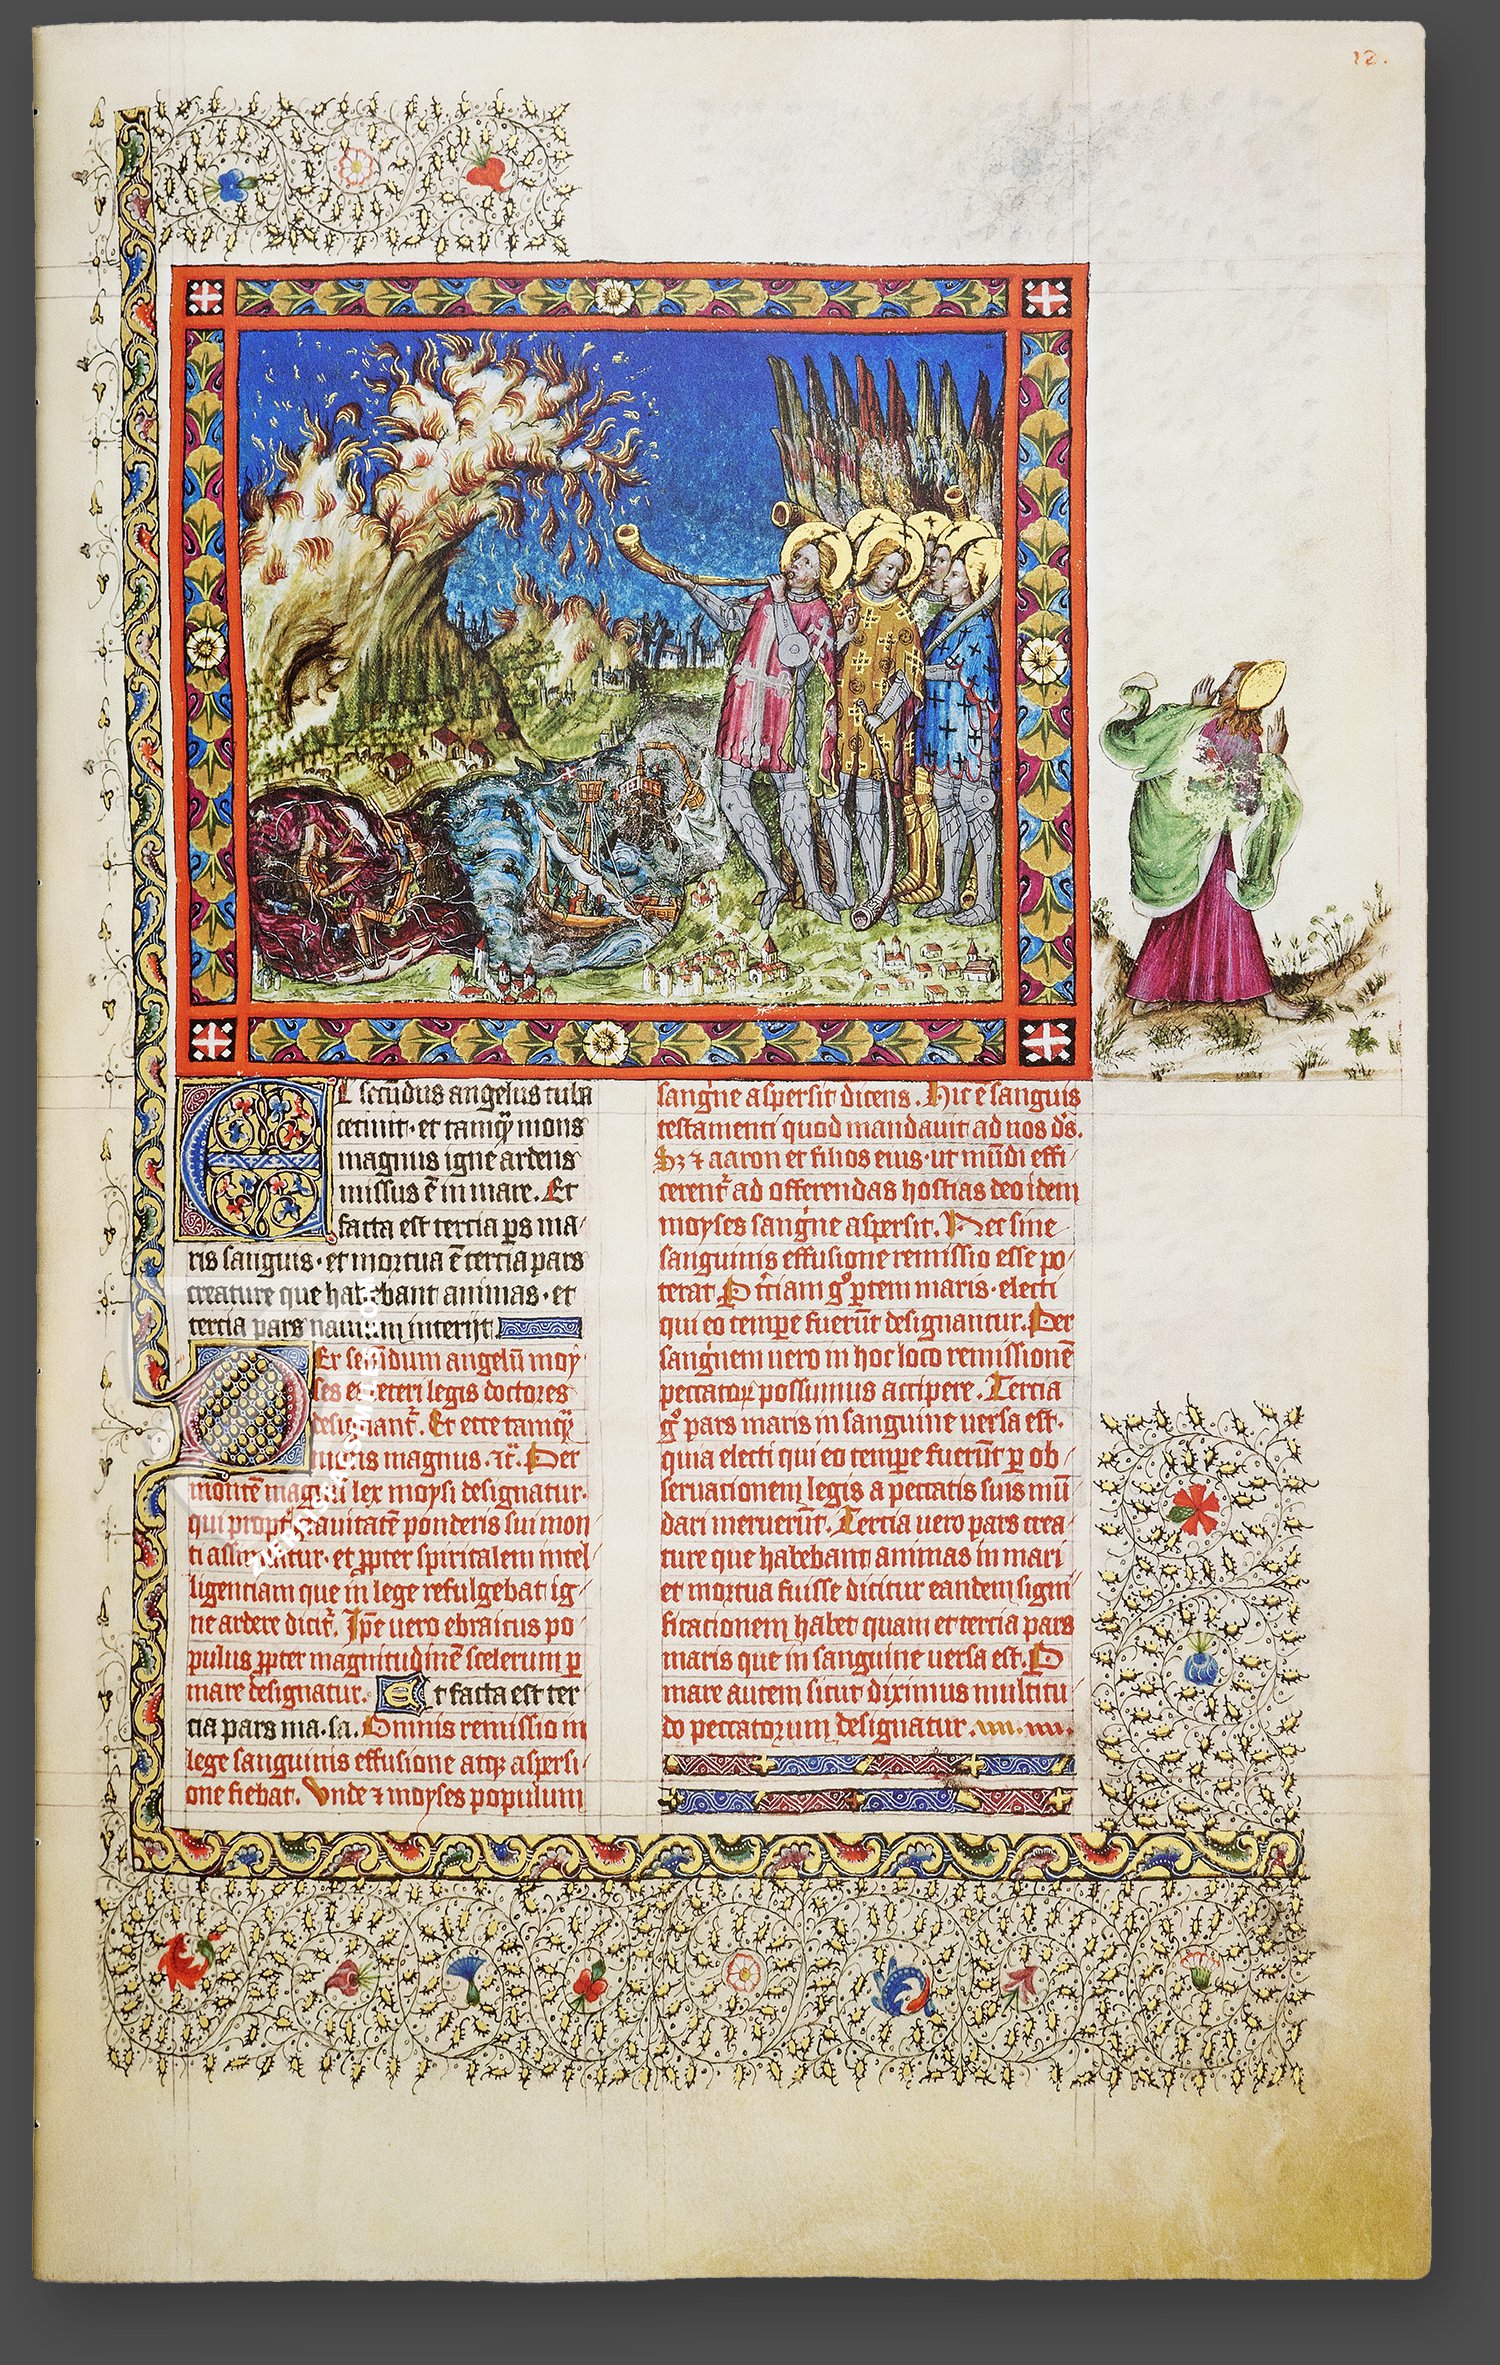 12.
Et secūdus angelus tuba
cecinit · et tamqȝ mons
magnus igne ardens
missus ē in mare. Et
facta est tercia ꝑs ma/
ris sanguis · et mortua ē tercia pars
creature que habebant animas · et
tercia pars nauium interijt
Per secūdum angelū moy
ses et veteri legis doctores
designant᷑. Et ecce tamqȝ
mons magnus · ⁊c̄. Per
montē magnū lex moysi designatur ·
qui propt᷑ grauitatē ponderis sui mon
ti assimilatur · et ꝓpter spiritalem intel/
ligentiam que in lege refulgebat ig/
ne ardere dicit᷑. Ip̄e uero ebraicus po/
pulus ꝓpter magnitudinē scelerum ꝑ
mare designatur. Et facta est ter
cia pars ma . sa . Omnis remissio in
lege sanguinis effusione atqȝ aspersi/
one fiebat. Vnde ⁊ moyses populum
sangͥne aspersit dicens. Hic ē sanguis
testamenti quod mandauit ad uos dˢ.
Sȝ ⁊ aaron et filios eius · ut mūdi effi/
cerent᷑ ad offerendas hostias deo idem
moyses sangͥne aspersit. Nec sine
sanguinis effusione remissio esse po/
terat P t̄ciam gͦ ꝑtem maris · electi
qui eo temꝑe fuerūt designantur. Per
sangͥnem uero in hoc loco remissionē
peccatoꝝ possumus accipere. Tercia
gͦ pars maris in sanguine uersa est ·
quia electi qui eo temꝑe fuerūt ꝑ ob/
seruationem legis a peccatis suis mū
dari meruerūt. Tercia uero pars crea/
ture que habebant animas in mari
et mortua fuisse dicitur eandem signi/
ficationem habet quam et tercia pars
maris que in sanguine uersa est. P
mare autem sicut diximus multitu/
do peccatorum designatur.